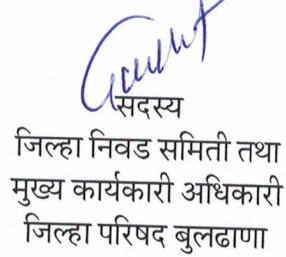 सदस्य
जिल्हा निवड समिती तथा
मुख्य कार्यकारी अधिकारी
जिल्हा परिषद बुलढाणा